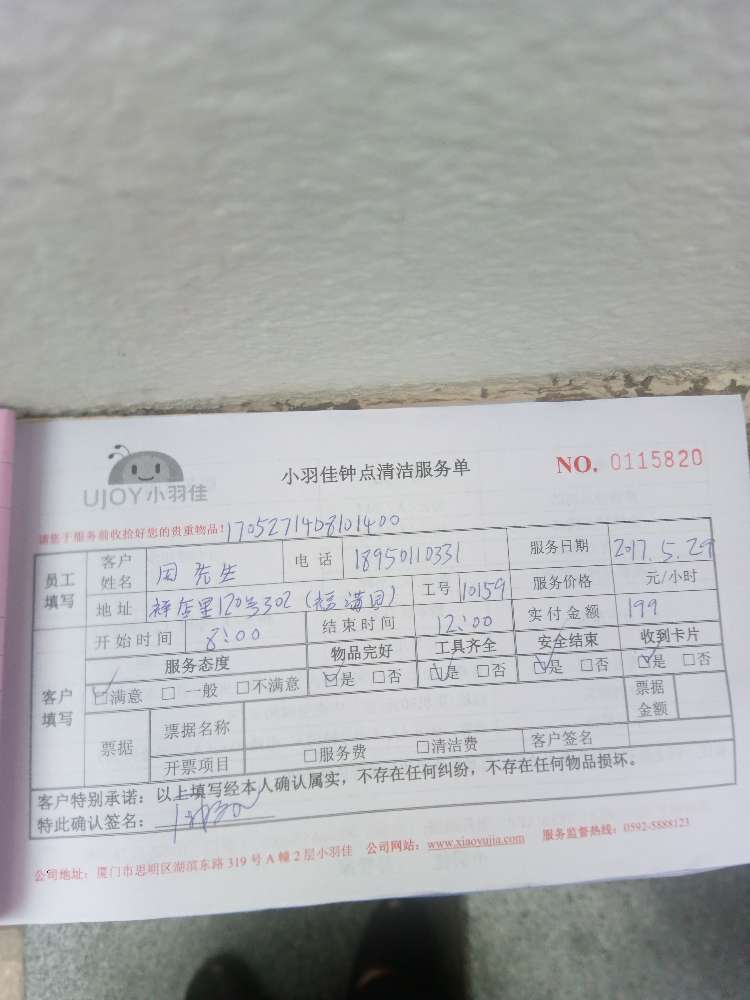 UJOY小羽佳
小羽佳钟点清洁服务单
NO. 0115820
请您于服务前收拾好您的贵重物品！1705271408101400
员工填写 客户姓名 周先生 电话 18950110331 服务日期 2017.5.29
地址 祥店里120号302（福满园） 工号 10159 服务价格 元/小时
客户填写 开始时间 8:00 结束时间 12:00 实付金额 199
服务态度 物品完好 工具齐全 安全结束 收到卡片
☑满意 □一般 □不满意 ☑是 □否 ☑是 □否 ☑是 □否 ☑是 □否
票据 票据名称 票据金额
开票项目 □服务费 □清洁费 客户签名
客户特别承诺：以上填写经本人确认属实，不存在任何纠纷，不存在任何物品损坏。
特此确认签名：
公司地址：厦门市思明区湖滨东路319号A幢2层小羽佳 公司网站：www.xiaoyujia.com 服务监督热线：0592-5888123